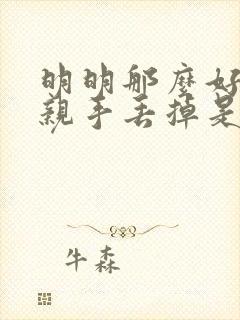 明明那麼好
親手丟掉是
牛森